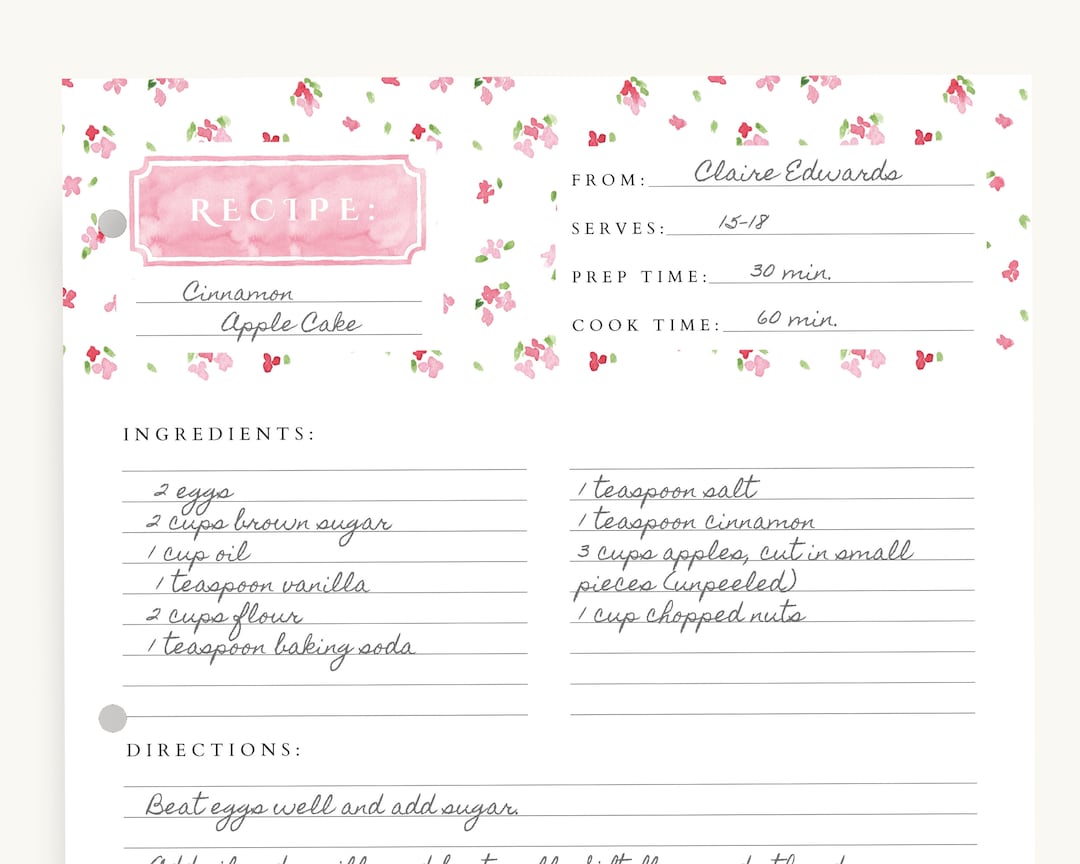 RECIPE:
Cinnamon
Apple Cake
FROM: Claire Edwards
SERVES: 15-18
PREP TIME: 30 min.
COOK TIME: 60 min.
INGREDIENTS:
2 eggs
2 cups brown sugar
1 cup oil
1 teaspoon vanilla
2 cups flour
1 teaspoon baking soda
1 teaspoon salt
1 teaspoon cinnamon
3 cups apples, cut in small
pieces (unpeeled)
1 cup chopped nuts
DIRECTIONS:
Beat eggs well and add sugar.